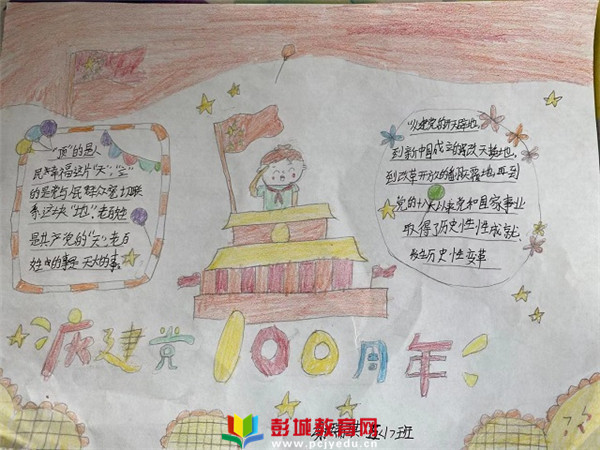 "顶"的是人
民幸福这片"天","立"
的是党与人民群众密切联
系这块"地",老百姓
是共产党的"天",老百
姓的事是天大的事。
从建党的开天辟地,
到新中国成立的改天换地,
到改革开放的翻天覆地,再到
党的十八大以来党和国家事业
取得了历史性性成就,
发生历史性变革
庆建党100周年
班
彭城教育网
www.pcjyedu.cn